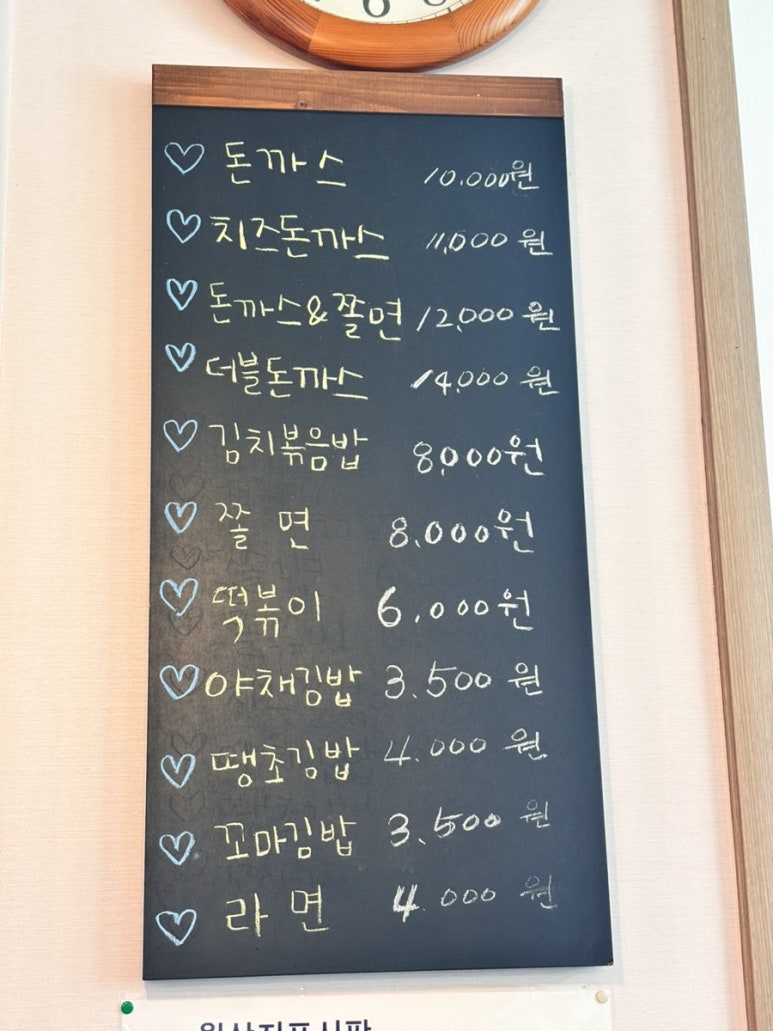 돈까스 10.000원
치즈돈까스 11,000원
돈까스&쫄면 12,000원
더블돈까스 14,000원
김치볶음밥 8,000원
쫄면 8.000원
떡볶이 6.000원
야채김밥 3.500원
땡초김밥 4.000원
꼬마김밥 3.500원
라면 4.000원
원산지표시판